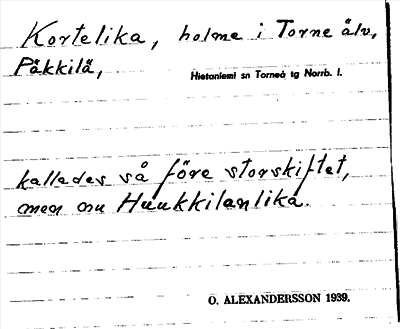 Kortelika, holme i Torne älv,
Päkkilä,
Hietaniemi sn Torneå tg Norrb. l.
kallades så före storskiftet,
men nu Huukkilanlika.
O. ALEXANDERSSON 1939.